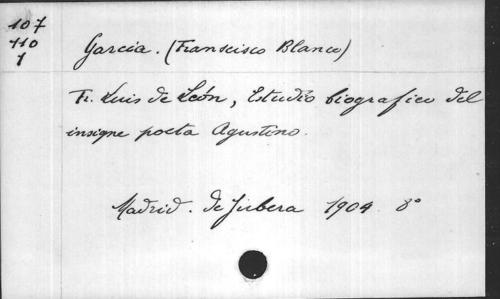 107
110
1
Garcia. (Francisco Blanco)
Fr. Luis de León, Estudio biografico del
insigne poeta Agustino.
Madrid. de Jubera 1904 8°